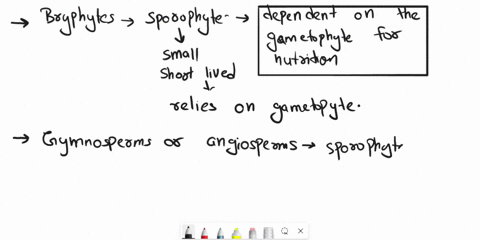 → Bryphytes → sporophyte → dependent on the
gametophyte for
nutrition
↓
small
short lived
↓
relies on gametopyte.
→ Gymnosperms or angiosperms → sporophyt